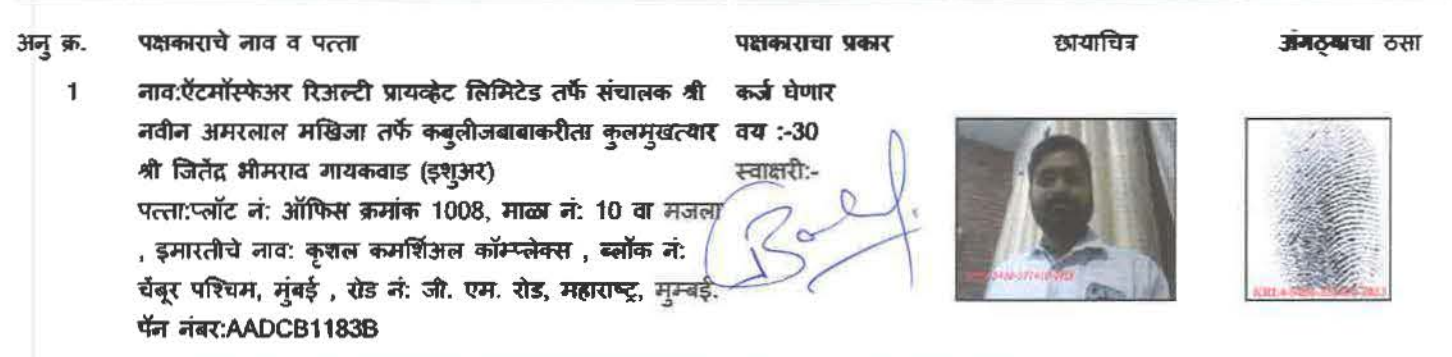 अनु क्र. पक्षकाराचे नाव व पत्ता पक्षकाराचा प्रकार छायाचित्र अंगठ्याचा ठसा
1 नाव:ऍटमॉस्फेअर रिअल्टी प्रायव्हेट लिमिटेड तर्फे संचालक श्री कर्ज घेणार
नवीन अमरलाल मखिजा तर्फे कबुलीजबाबाकरीता कुलमुखत्यार वय :-30
श्री जितेंद्र भीमराव गायकवाड (इशुअर) स्वाक्षरी:-
पत्ता:प्लॉट नं: ऑफिस क्रमांक 1008, माळा नं: 10 वा मजला
, इमारतीचे नाव: कृशल कमर्शिअल कॉम्प्लेक्स , ब्लॉक नं:
चेंबूर पश्चिम, मुंबई , रोड नं: जी. एम. रोड, महाराष्ट्र, मुम्बई.
पॅन नंबर:AADCB1183B